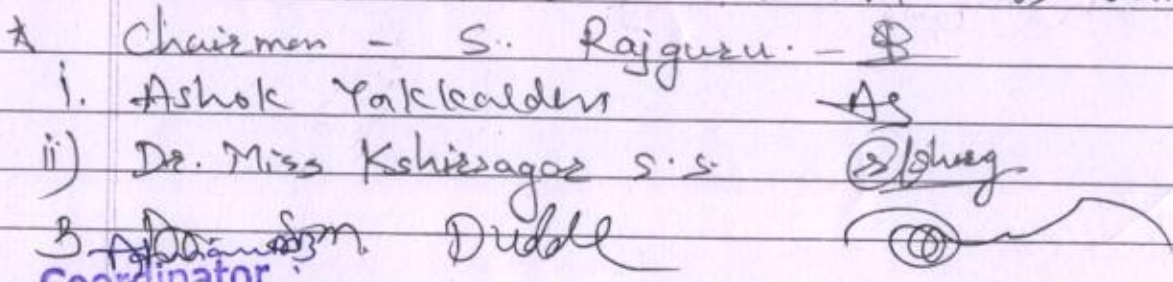 * Chairman - S. Rajguru. -
i. Ashok Yakkaldevi As
ii) Dr. Miss Kshirsagar S.S.
3 Duddl
Coordinator